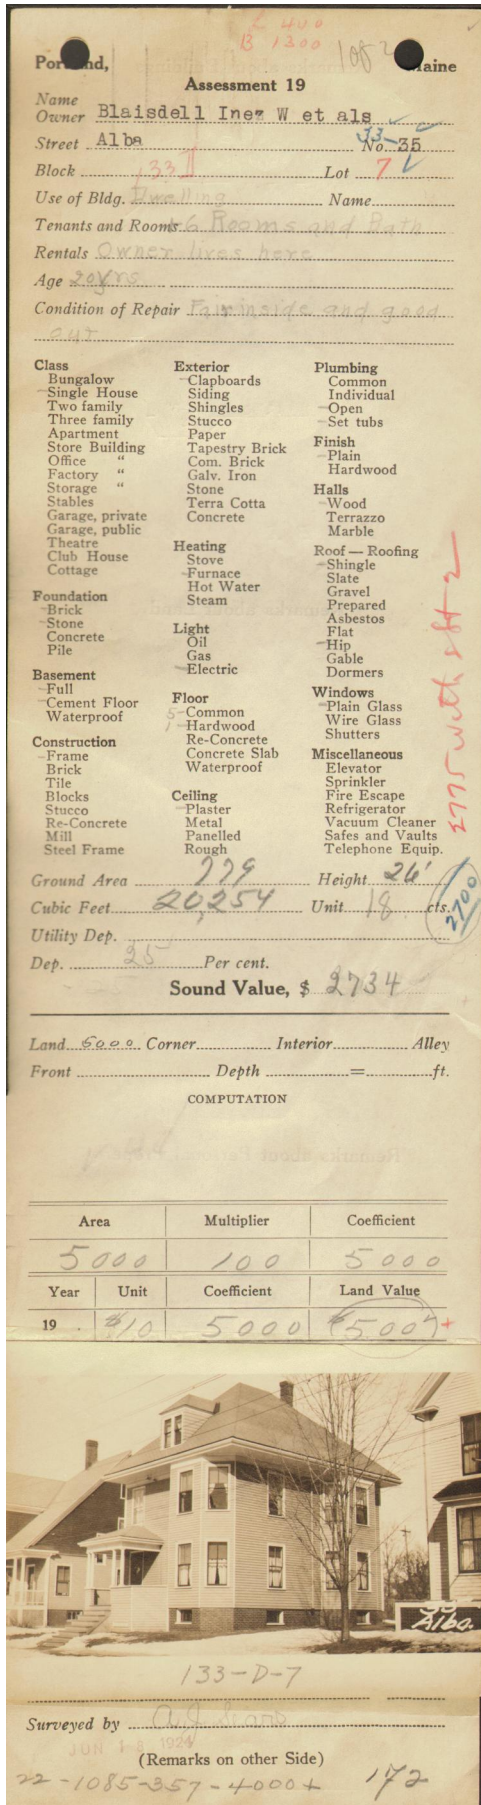 L 400
B 1300 1 of 2
Portland, Maine
Assessment 19
Name
Owner Blaisdell Inez W et als
Street Alba 33- No. 35
Block 133 D Lot 7
Use of Bldg. Dwelling Name
Tenants and Rooms 6 Rooms and Bath
Rentals Owner lives here
Age 20 yrs
Condition of Repair Fair inside and good
out
Class
Bungalow
Single House
Two family
Three family
Apartment
Store Building
Office "
Factory "
Storage "
Stables
Garage, private
Garage, public
Theatre
Club House
Cottage
Foundation
Brick
Stone
Concrete
Pile
Basement
Full
Cement Floor
Waterproof
Construction
Frame
Brick
Tile
Blocks
Stucco
Re-Concrete
Mill
Steel Frame
Exterior
Clapboards
Siding
Shingles
Stucco
Paper
Tapestry Brick
Com. Brick
Galv. Iron
Stone
Terra Cotta
Concrete
Heating
Stove
Furnace
Hot Water
Steam
Light
Oil
Gas
Electric
Floor
5 - Common
1 - Hardwood
Re-Concrete
Concrete Slab
Waterproof
Ceiling
Plaster
Metal
Panelled
Rough
Plumbing
Common
Individual
Open
Set tubs
Finish
Plain
Hardwood
Halls
Wood
Terrazzo
Marble
Roof — Roofing
Shingle
Slate
Gravel
Prepared
Asbestos
Flat
Hip
Gable
Dormers
Windows
Plain Glass
Wire Glass
Shutters
Miscellaneous
Elevator
Sprinkler
Fire Escape
Refrigerator
Vacuum Cleaner
Safes and Vaults
Telephone Equip.
2775 with sht 2
Ground Area 779 Height 26'
Cubic Feet 20,254 Unit 18 cts.
2700
Utility Dep.
Dep. 25 Per cent.
Sound Value, $ 2734
Land 5000 Corner Interior Alley
Front Depth = ft.
COMPUTATION
Area Multiplier Coefficient
5000 100 5000
Year Unit Coefficient Land Value
19 . $10 5000 $500 +
35
Alba.
133-D-7
Surveyed by
JUN 18 1924
(Remarks on other Side)
22-1085-357-4000+ 172